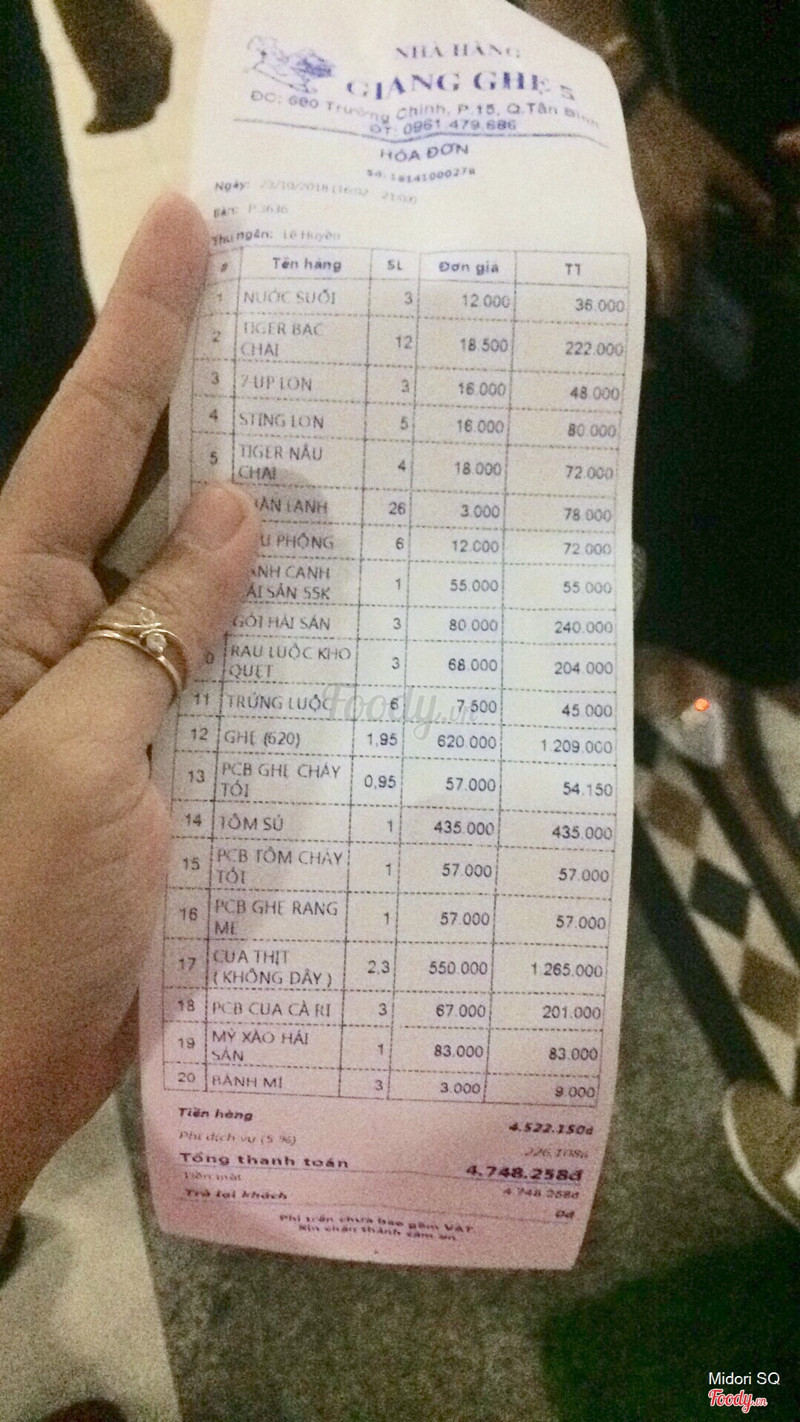 NHÀ HÀNG
GIANG GHẸ 5
ĐC: 680 Trường Chinh, P.15, Q.Tân Bình
ĐT: 0961.479.686
HÓA ĐƠN
Số: 18141000278
Ngày: 23/10/2018 (16:02 - 21:03)
Bàn: P3636
Thu ngân: Lê Huyền
# Tên hàng SL Đơn giá TT
1 NƯỚC SUỐI 3 12.000 36.000
2 TIGER BẠC CHAI 12 18.500 222.000
3 7 UP LON 3 16.000 48.000
4 STING LON 5 16.000 80.000
5 TIGER NÂU CHAI 4 18.000 72.000
LẠNH 26 3.000 78.000
PHỘNG 6 12.000 72.000
CANH SẢN 55K 1 55.000 55.000
GỎI HẢI SẢN 3 80.000 240.000
RAU LUỘC KHO QUẸT 3 68.000 204.000
11 TRỨNG LUỘC 6 7.500 45.000
12 GHẸ (620) 1,95 620.000 1.209.000
13 PCB GHẸ CHÁY TỎI 0,95 57.000 54.150
14 TÔM SÚ 1 435.000 435.000
15 PCB TÔM CHÁY TỎI 1 57.000 57.000
16 PCB GHẸ RANG ME 1 57.000 57.000
17 CUA THỊT ( KHÔNG DÂY ) 2,3 550.000 1.265.000
18 PCB CUA CÀ RI 3 67.000 201.000
19 MỲ XÀO HẢI SẢN 1 83.000 83.000
20 BÁNH MÌ 3 3.000 9.000
Tiền hàng 4.522.150đ
Phí dịch vụ (5 %) 226.108đ
Tổng thanh toán 4.748.258đ
Tiền mặt 4.748.258đ
Trả lại khách 0đ
Phí trên chưa bao gồm VAT.
Xin chân thành cảm ơn
Foody.vn
Midori SQ
Foody.vn